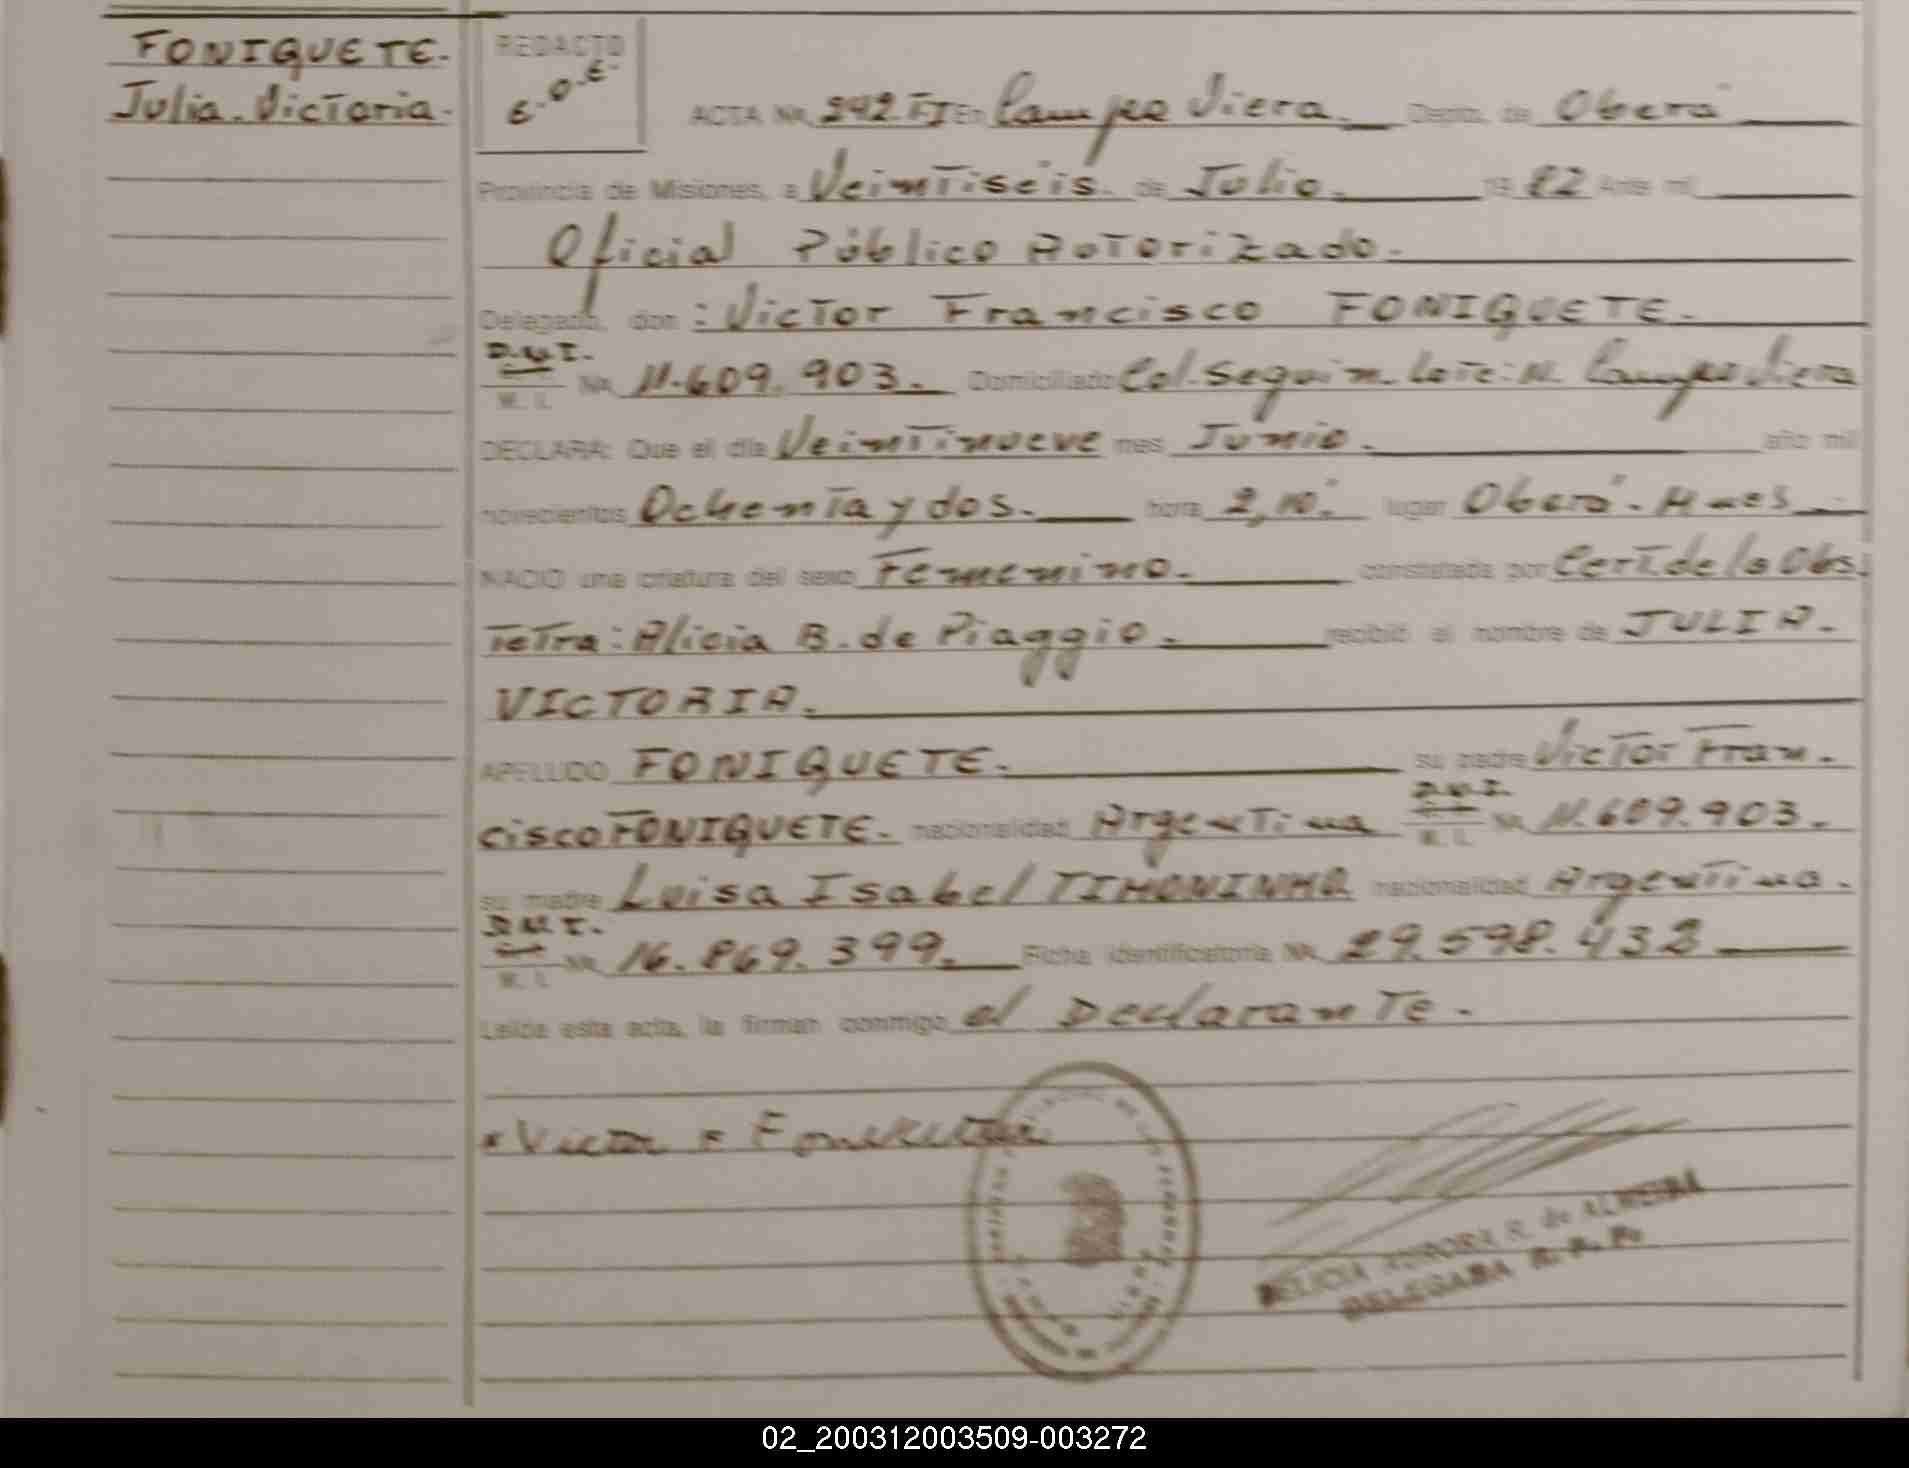 FONIQUETE.
Julia. Victoria.
REDACTO
E.O.E.
ACTA Nº 242 TI En Campo Viera. Depto. de Oberá
Provincia de Misiones, a Veintiseis. de Julio. 19 82 Ante mi
Oficial Público Autorizado.
Delegado, don: Victor Francisco FONIQUETE.
D.N.I.
M. I. Nº 11.609.903. Domiciliado Col. Seguin. Lote: N. Campo Viera
DECLARA: Que el día Veintinueve mes Junio. año mil
novecientos Ochenta y dos. hora 2,10. lugar Oberá - Mnes
NACIO una criatura del sexo Femenino. constatada por Cert. de la Obs.
Tetra: Alicia B. de Piaggio. recibió el nombre de JULIA.
VICTORIA.
APELLIDO FONIQUETE. su padre Victor Fran.
cisco FONIQUETE. nacionalidad Argentina D.N.I. M. I. Nº 11.609.903.
su madre Luisa Isabel TIMONINHO nacionalidad Argentina.
D.N.I.
M. I. Nº 16.869.399. Ficha identificatoria Nº 29.598.432
Leída esta acta, la firman conmigo el Declarante.
Victor F
FELICIA AURORA R. de ALMEIDA
DELEGADA R. P. P.
02_200312003509-003272